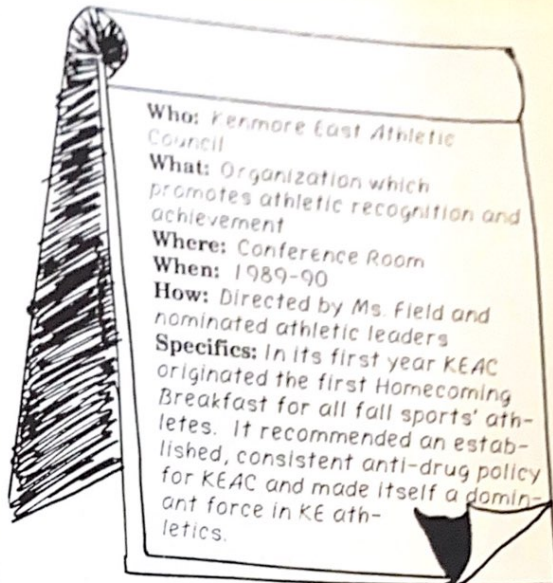 Who: Kenmore East Athletic
Council
What: Organization which
promotes athletic recognition and
achievement
Where: Conference Room
When: 1989-90
How: Directed by Ms. Field and
nominated athletic leaders
Specifics: In its first year KEAC
originated the first Homecoming
Breakfast for all fall sports' ath-
letes. It recommended an estab-
lished, consistent anti-drug policy
for KEAC and made itself a domin-
ant force in KE ath-
letics.